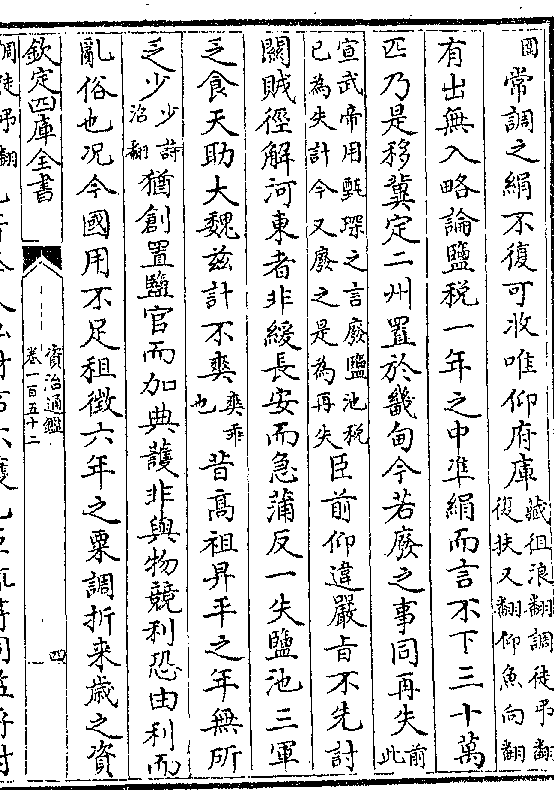 圖常調之絹不復可收唯仰府庫藏徂浪翻調徒弔翻復扶又翻仰魚向翻
有出無入略論鹽税一年之中準絹而言不下三十萬
匹乃是移冀定二州置於畿甸今若廢之事同再失前此
宣武帝用甄琛之言廢鹽池税已為失計今又廢之是為再失臣前仰違嚴旨不先討
關賊徑解河東者非緩長安而急蒲反一失鹽池三軍
乏食天助大魏兹計不爽爽乖也昔高祖昇平之年無所
乏少少詩沼翻猶創置鹽官而加典護非與物競利恐由利而
亂俗也况今國用不足租徵六年之粟調折来歳之資
欽定四庫全書
資治通鑑
卷一百五十二
四
調徒弔翻